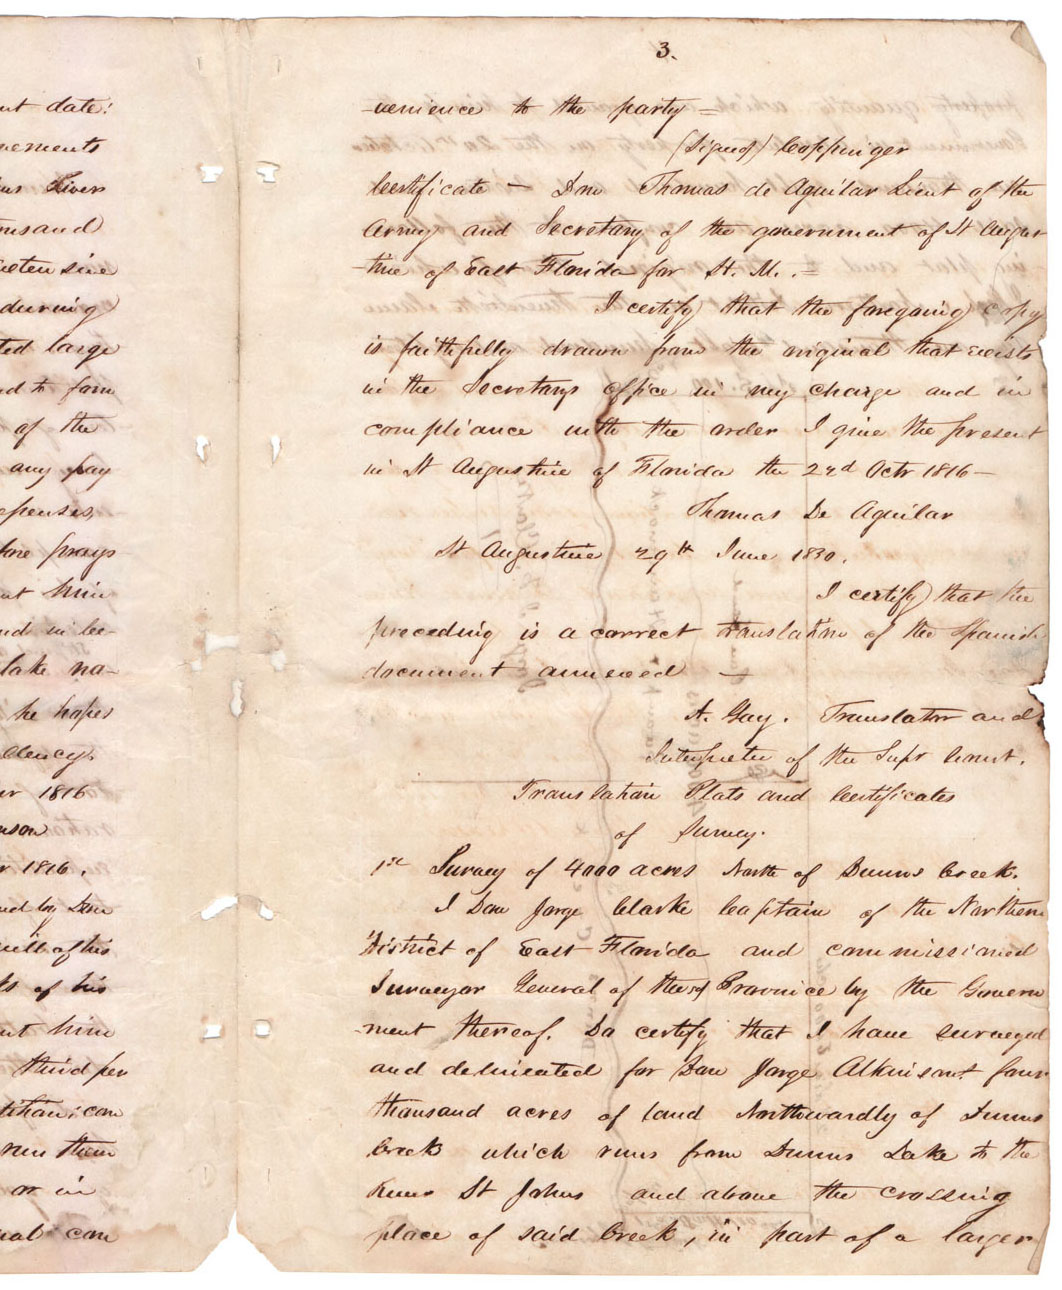 nt date:
vements
Liver
ousand
extensive
during
ted large
nd to form
of the
any pay
epenses,
prays
at him
nd in be-
lake na-
he hopes
clency.
er 1816
nson
r 1816.
ed by Don
will of his
ts of his
nt him
third per
can
run them
or in
can
3.
-venience to the party =
(Signed) Coppinger
Certificate - Don Thomas de Aguilar Lieut of the
Army and Secretary of the government of St Augus
-tine of East Florida for St. M. =
I certify that the foregoing copy
is faithfully drawn from the original that exists
in the Secretarys office in my charge and in
compliance with the order I give the present
in St Augustine of Florida the 22d Octr 1816 -
Thomas De Aguilar
St Augustine 29th June 1830.
I certify that the
preceding is a correct translation of the Spanish
document annexed -
A. Gay. Translator and
Interpreter of the Supr Court.
Translation Plats and Certificates
of Survey.
1st Survey of 4000 acres North of Dunns Creek.
I Don Jorge Clarke Captain of the Northern
District of East Florida and commissioned
Surveyor General of the sd Province by the Govern
-ment thereof. Do certify that I have surveyed
and delineated for Don Jorge Atkinson four
thousand acres of land Northwardly of Dunns
Creek which runs from Dunns Lake to the
River St Johns and above the crossing
place of said Creek, in part of a larger